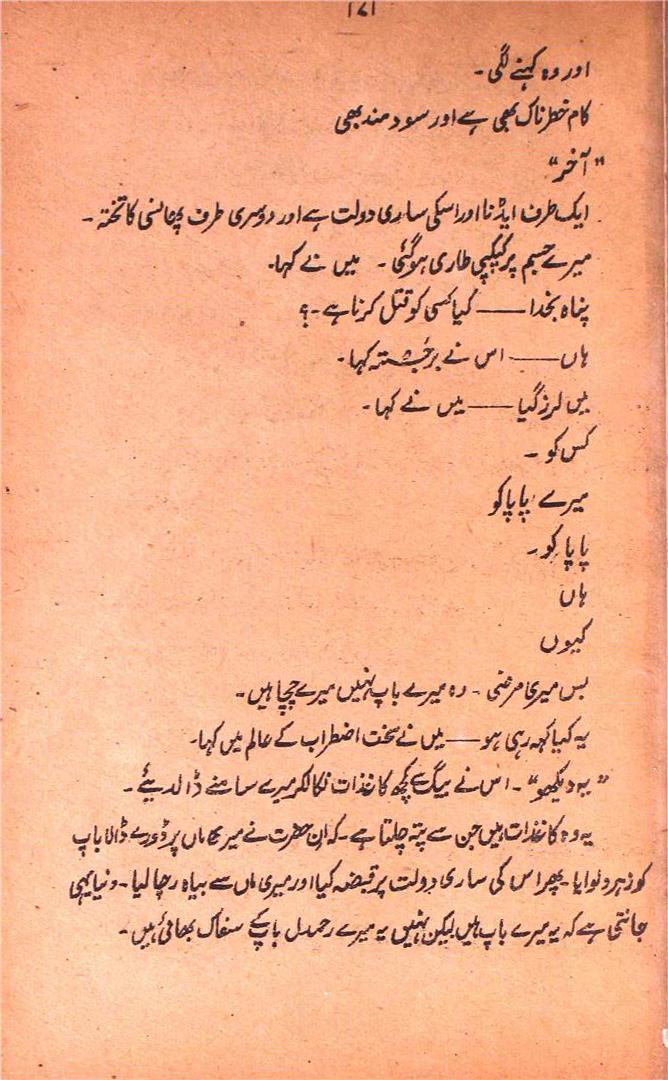 ۱۷۱
اور وہ کہنے لگی۔
کام خطرناک بھی ہے اور سود مند بھی
"آخر"
ایک طرف ایڈنا اور اسکی ساری دولت ہے اور دوسری طرف پھانسی کا تختہ۔
میرے جسم پر کپکپی طاری ہو گئی۔ میں نے کہا۔
پناہ بخدا —— کیا کسی کو قتل کرنا ہے۔؟
ہاں —— اس نے برجستہ کہا۔
میں لرز گیا —— میں نے کہا۔
کس کو۔
میرے پاپا کو
پاپا کو۔
ہاں
کیوں
بس میری مرضی۔ وہ میرے باپ نہیں میرے چچا ہیں۔
یہ کیا کہہ رہی ہو —— میں نے سخت اضطراب کے عالم میں کہا۔
"یہ دیکھو"۔ اس نے بیگ سے کچھ کاغذات نکالکر میرے سامنے ڈالدیئے۔
یہ وہ کاغذات ہیں جن سے پتہ چلتا ہے۔ کہ ان حضرت نے میری ماں پر ڈورے ڈالا باپ
کو زہر دلوایا۔ پھر اس کی ساری دولت پر قبضہ کیا اور میری ماں سے بیاہ رچا لیا۔ دنیا یہی
جانتی ہے کہ یہ میرے باپ ہیں لیکن نہیں یہ میرے رحمدل باپ کے سفاک بھائی ہیں۔